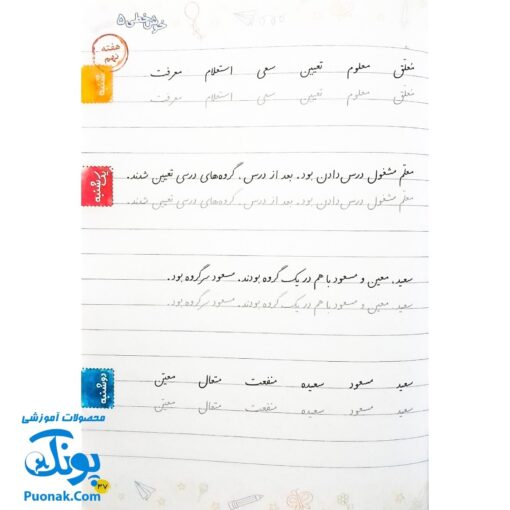 خوش‌خطی ۵
هفته
نهم
شنبه
معلّق معلوم تعیین سعی استعلام معرفت
معلّق معلوم تعیین سعی استعلام معرفت
یک‌شنبه
معلّم مشغول درس دادن بود. بعد از درس، گروه‌های درسی تعیین شدند.
معلّم مشغول درس دادن بود. بعد از درس، گروه‌های درسی تعیین شدند.
سعید، معین و مسعود با هم در یک گروه بودند. مسعود سرگروه بود.
سعید، معین و مسعود با هم در یک گروه بودند. مسعود سرگروه بود.
دوشنبه
سعید مسعود سعیده منفعت متعال معیّن
سعید مسعود سعیده منفعت متعال معیّن
محصولات آموزشی
پونک
Puonak.Com
۳۷